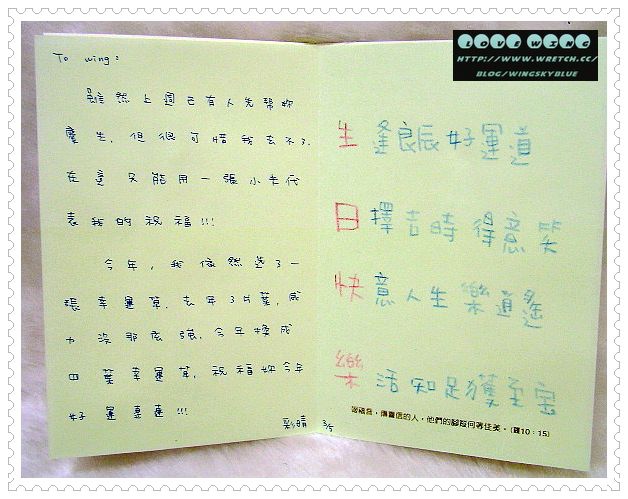 LOVE WING
HTTP://WWW.WRETCH.CC/
BLOG/WINGSKYBLUE
To wing:
雖然上週已有人先幫妳
慶生,但很可惜我去不了.
在這只能用一張小卡代
表我的祝福!!!
今年,我依然選了一
張幸運草,去年3片葉,威
力沒那麼強,今年換成
四葉幸運草,祝福妳今年
好運連連!!!
彩晴 3/5
生逢良辰好運道
日擇吉時得意笑
快意人生樂逍遙
樂活知足獲至寶
報福音,傳喜信的人,他們的腳蹤何等佳美。(羅10:15)